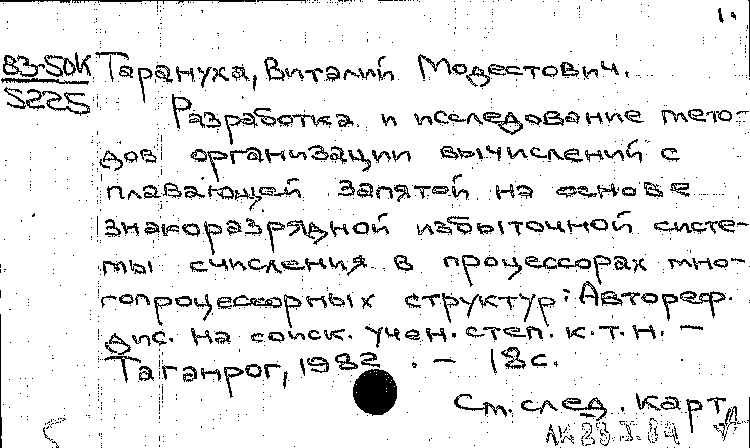 1.
83-50К Тарануха, Виталий Модестович.
5225
Разработка и исследование мето-
дов организации вычислений с
плавающей запятой на основе
знакоразрядной избыточной систе-
мы счисления в процессорах мно-
гопроцессорных структур: Автореф.
дис. на соиск. учен. степ. к.т.н. —
Таганрог, 1982. — 18с.
См. след. карт.